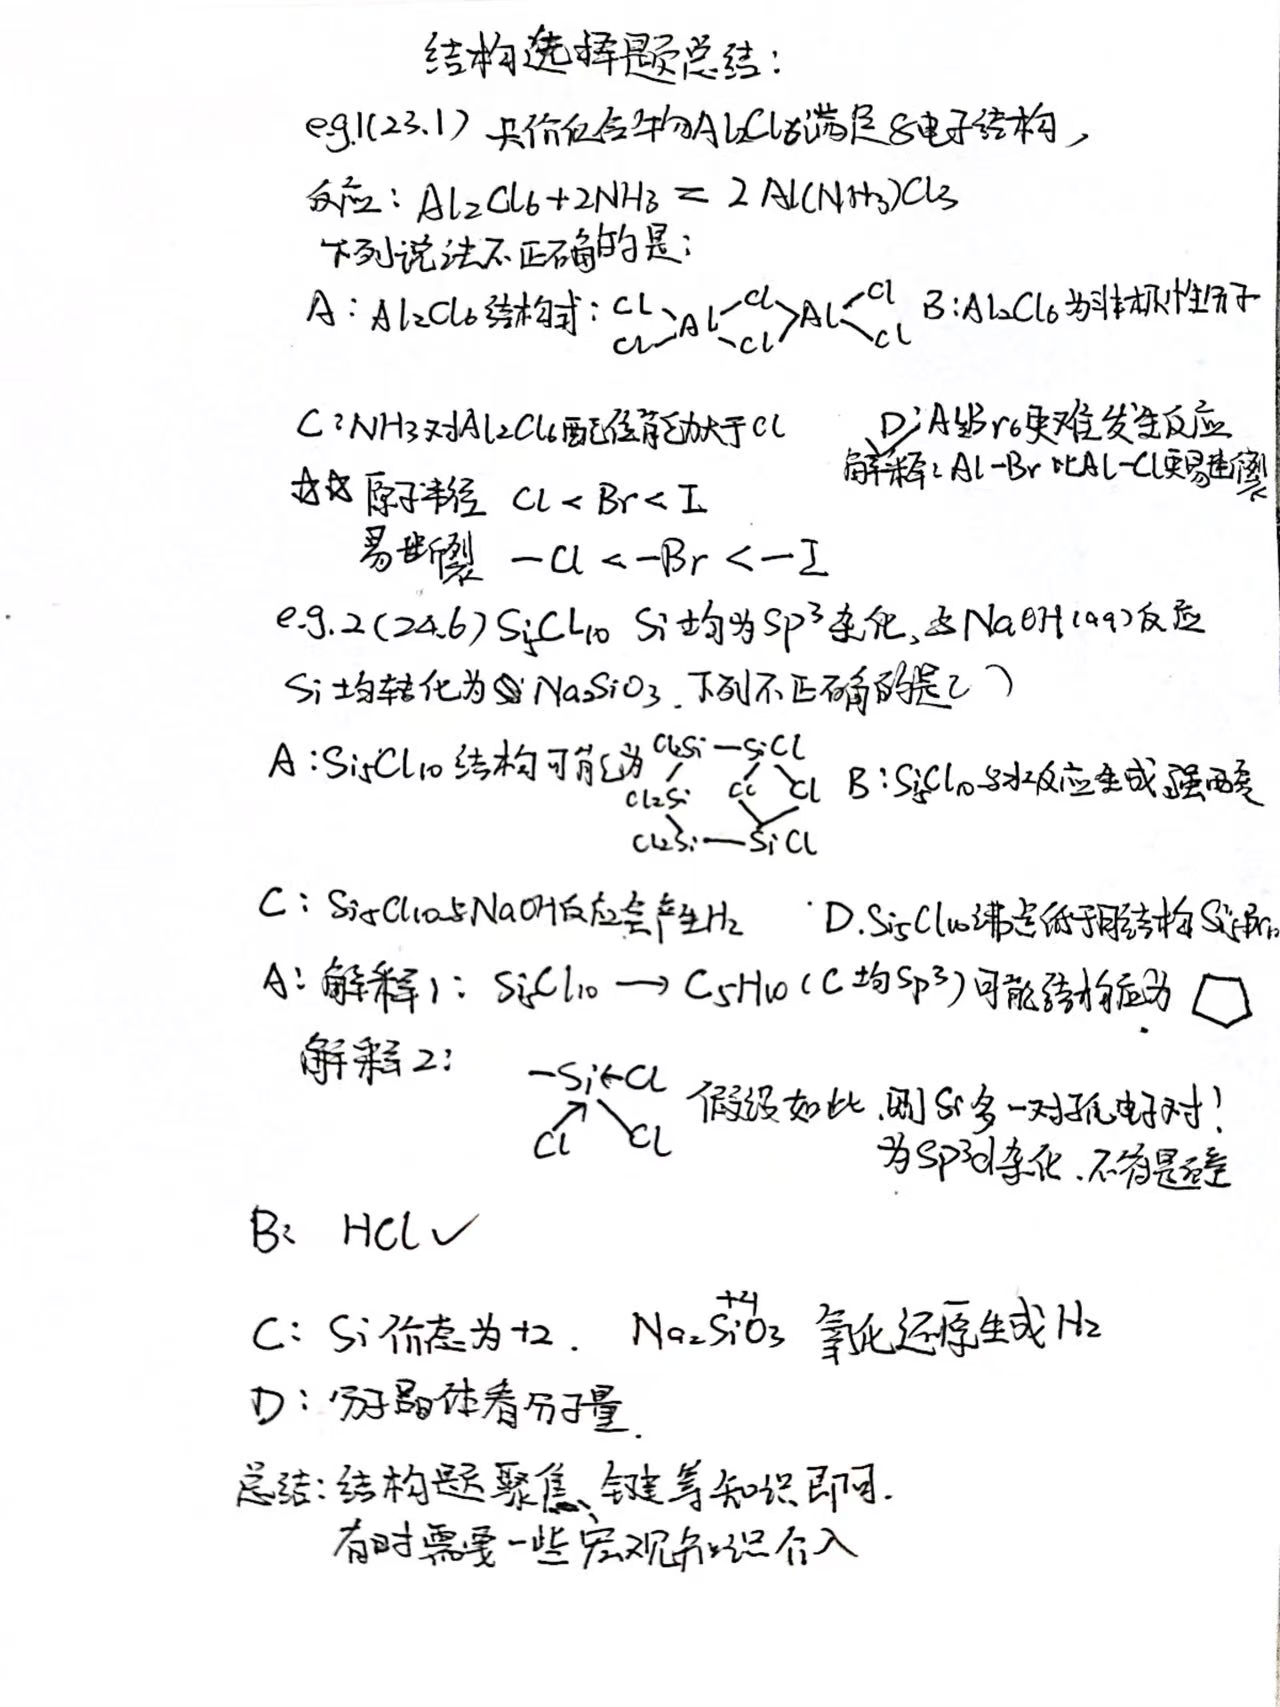 结构选择题总结:
e.g.1(23.1) 共价化合物Al2Cl6满足8电子结构,
反应: Al2Cl6+2NH3 = 2Al(NH3)Cl3
下列说法不正确的是:
A: Al2Cl6结构式: Cl Cl Al Cl Cl Al Cl Cl B:Al2Cl6为非极性分子
C:NH3对Al2Cl6配位能力大于Cl D:Al2Br6更难发生反应
解释: Al-Br比Al-Cl更易断裂
☆☆ 原子半径 Cl < Br < I
易断裂 -Cl < -Br < -I
e.g.2(24.6) Si5Cl10 Si均为sp³杂化,与NaOH(aq)反应
Si均转化为Na2SiO3.下列不正确的是( )
A:Si5Cl10结构可能为 Cl2Si-SiCl Cl2Si Cl Cl Cl2Si-SiCl B:Si5Cl10与水反应生成强酸
C: Si5Cl10与NaOH反应会产生H2 D.Si5Cl10沸点低于同结构Si5Br10
A: 解释1: Si5Cl10 → C5H10 (C均sp³)可能结构应为
解释2: -Si←Cl Cl Cl 假设如此,则Si多一对孤电子对!
为sp³d杂化.不符题意
B: HCl✓
C: Si价态为+2. Na2SiO3 +4 氧化还原生成H2
D: 分子晶体看分子量.
总结:结构题聚焦、键等知识即可.
有时需要一些宏观知识介入